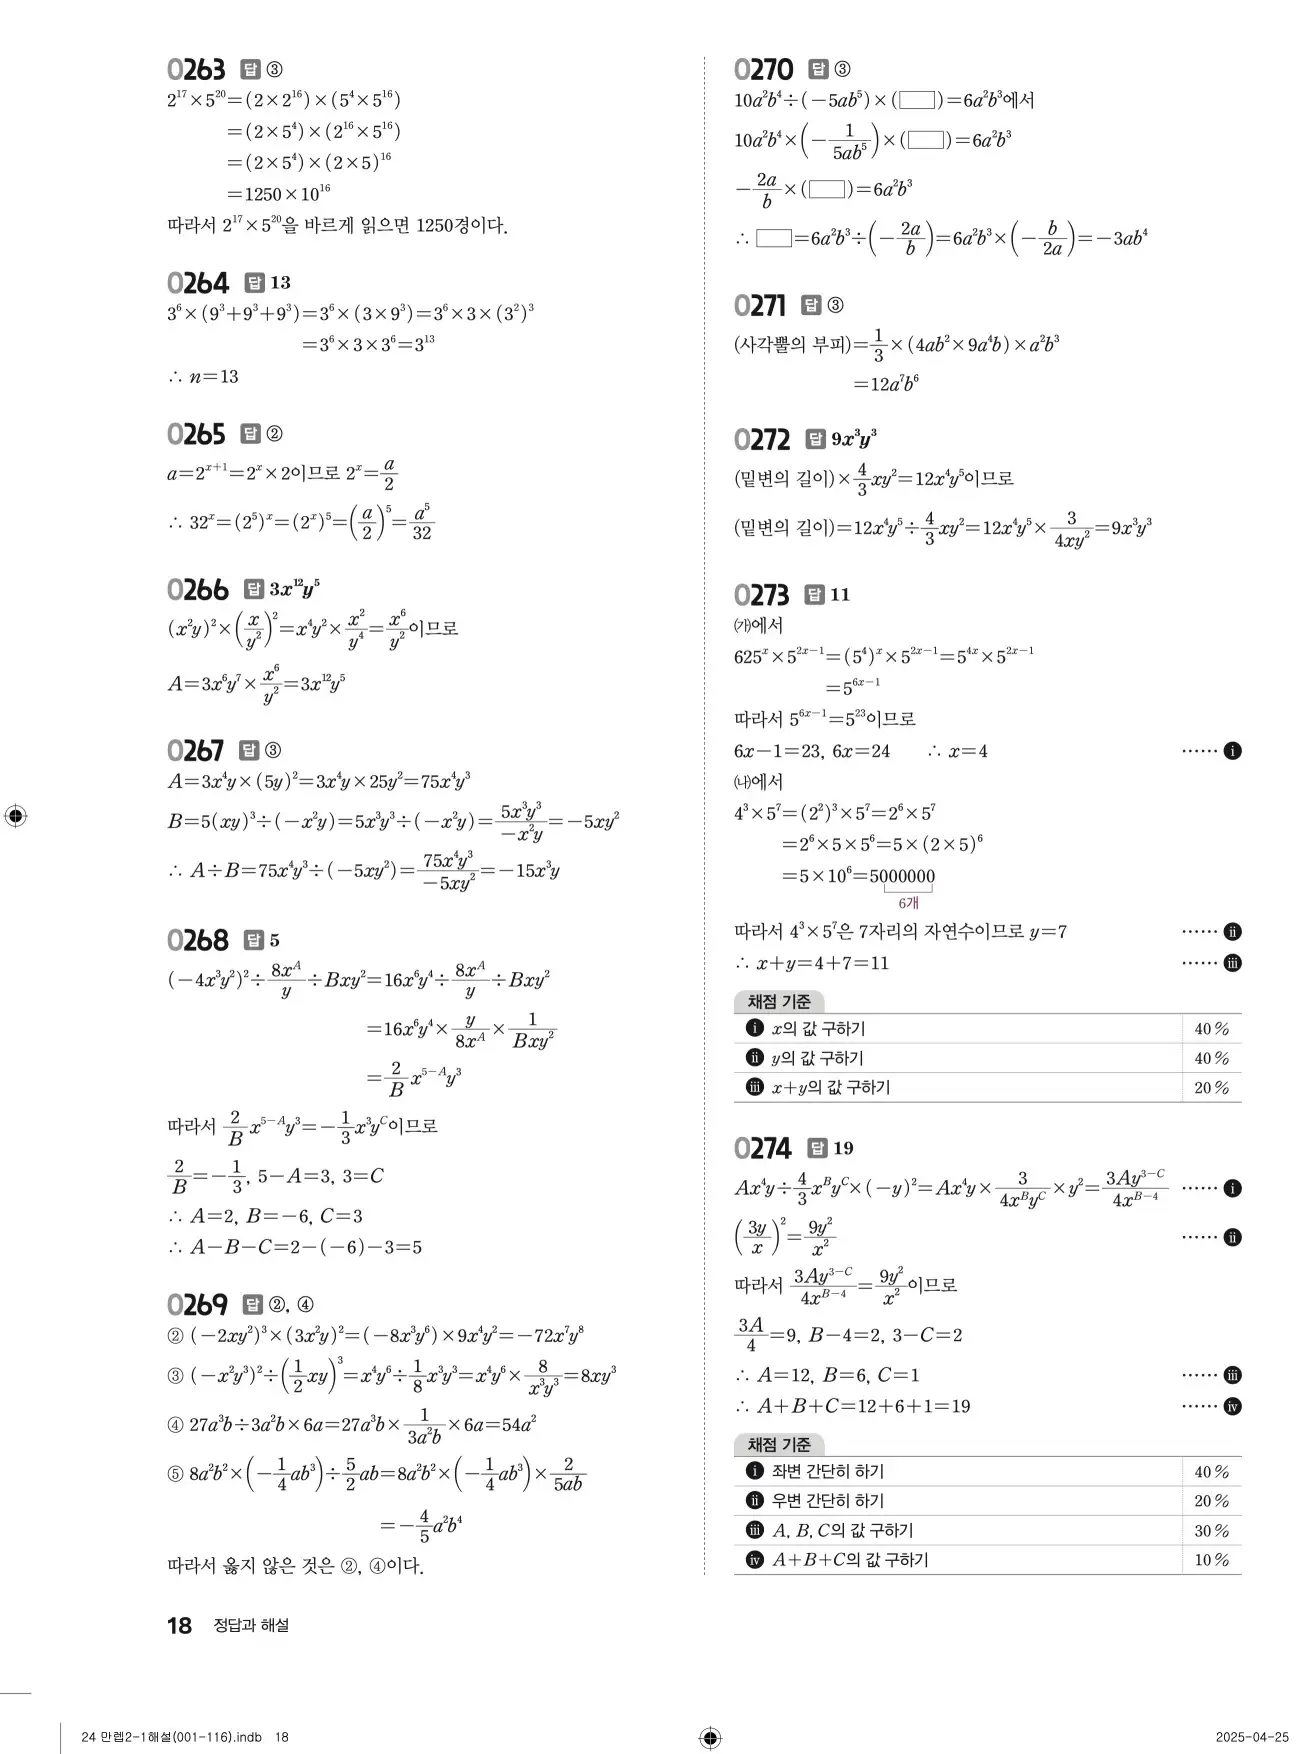 0263 답 ③
2¹⁷×5²⁰=(2×2¹⁶)×(5⁴×5¹⁶)
=(2×5⁴)×(2¹⁶×5¹⁶)
=(2×5⁴)×(2×5)¹⁶
=1250×10¹⁶
따라서 2¹⁷×5²⁰을 바르게 읽으면 1250경이다.
0264 답 13
3⁶×(9³+9³+9³)=3⁶×(3×9³)=3⁶×3×(3²)³
=3⁶×3×3⁶=3¹³
∴ n=13
0265 답 ②
a=2ˣ⁺¹=2ˣ×2이므로 2ˣ=a/2
∴ 32ˣ=(2⁵)ˣ=(2ˣ)⁵=(a/2)⁵=a⁵/32
0266 답 3x¹²y⁵
(x²y)²×(x/y²)²=x⁴y²×x²/y⁴=x⁶/y²이므로
A=3x⁶y⁷×x⁶/y²=3x¹²y⁵
0267 답 ③
A=3x⁴y×(5y)²=3x⁴y×25y²=75x⁴y³
B=5(xy)³÷(-x²y)=5x³y³÷(-x²y)=5x³y³/-x²y=-5xy²
∴ A÷B=75x⁴y³÷(-5xy²)=75x⁴y³/-5xy²=-15x³y
0268 답 5
(-4x³y²)²÷8x^A/y÷Bxy²=16x⁶y⁴÷8x^A/y÷Bxy²
=16x⁶y⁴×y/8x^A×1/Bxy²
=2/B x^(5-A)y³
따라서 2/B x^(5-A)y³=-1/3 x³y^C이므로
2/B=-1/3, 5-A=3, 3=C
∴ A=2, B=-6, C=3
∴ A-B-C=2-(-6)-3=5
0269 답 ②, ④
② (-2xy²)³×(3x²y)²=(-8x³y⁶)×9x⁴y²=-72x⁷y⁸
③ (-x²y³)²÷(1/2 xy)³=x⁴y⁶÷1/8 x³y³=x⁴y⁶×8/x³y³=8xy³
④ 27a³b÷3a²b×6a=27a³b×1/3a²b×6a=54a²
⑤ 8a²b²×(-1/4 ab³)÷5/2 ab=8a²b²×(-1/4 ab³)×2/5ab
=-4/5 a²b⁴
따라서 옳지 않은 것은 ②, ④이다.
18 정답과 해설
0270 답 ③
10a²b⁴÷(-5ab⁵)×(□)=6a²b³에서
10a²b⁴×(-1/5ab⁵)×(□)=6a²b³
-2a/b×(□)=6a²b³
∴ □=6a²b³÷(-2a/b)=6a²b³×(-b/2a)=-3ab⁴
0271 답 ③
(사각뿔의 부피)=1/3×(4ab²×9a⁴b)×a²b³
=12a⁷b⁶
0272 답 9x³y³
(밑변의 길이)×4/3 xy²=12x⁴y⁵이므로
(밑변의 길이)=12x⁴y⁵÷4/3 xy²=12x⁴y⁵×3/4xy²=9x³y³
0273 답 11
㈎에서
625ˣ×5²ˣ⁻¹=(5⁴)ˣ×5²ˣ⁻¹=5⁴ˣ×5²ˣ⁻¹
=5⁶ˣ⁻¹
따라서 5⁶ˣ⁻¹=5²³이므로
6x-1=23, 6x=24 ∴ x=4 …… ⅰ
㈏에서
4³×5⁷=(2²)³×5⁷=2⁶×5⁷
=2⁶×5×5⁶=5×(2×5)⁶
=5×10⁶=5000000
6개
따라서 4³×5⁷은 7자리의 자연수이므로 y=7 …… ⅱ
∴ x+y=4+7=11 …… ⅲ
채점 기준
ⅰ x의 값 구하기 40%
ⅱ y의 값 구하기 40%
ⅲ x+y의 값 구하기 20%
0274 답 19
Ax⁴y÷4/3 x^By^C×(-y)²=Ax⁴y×3/4x^By^C×y²=3Ay^(3-C)/4x^(B-4) …… ⅰ
(3y/x)²=9y²/x² …… ⅱ
따라서 3Ay^(3-C)/4x^(B-4)=9y²/x²이므로
3A/4=9, B-4=2, 3-C=2
∴ A=12, B=6, C=1 …… ⅲ
∴ A+B+C=12+6+1=19 …… ⅳ
채점 기준
ⅰ 좌변 간단히 하기 40%
ⅱ 우변 간단히 하기 20%
ⅲ A, B, C의 값 구하기 30%
ⅳ A+B+C의 값 구하기 10%
24 만렙2-1해설(001-116).indb 18
2025-04-25